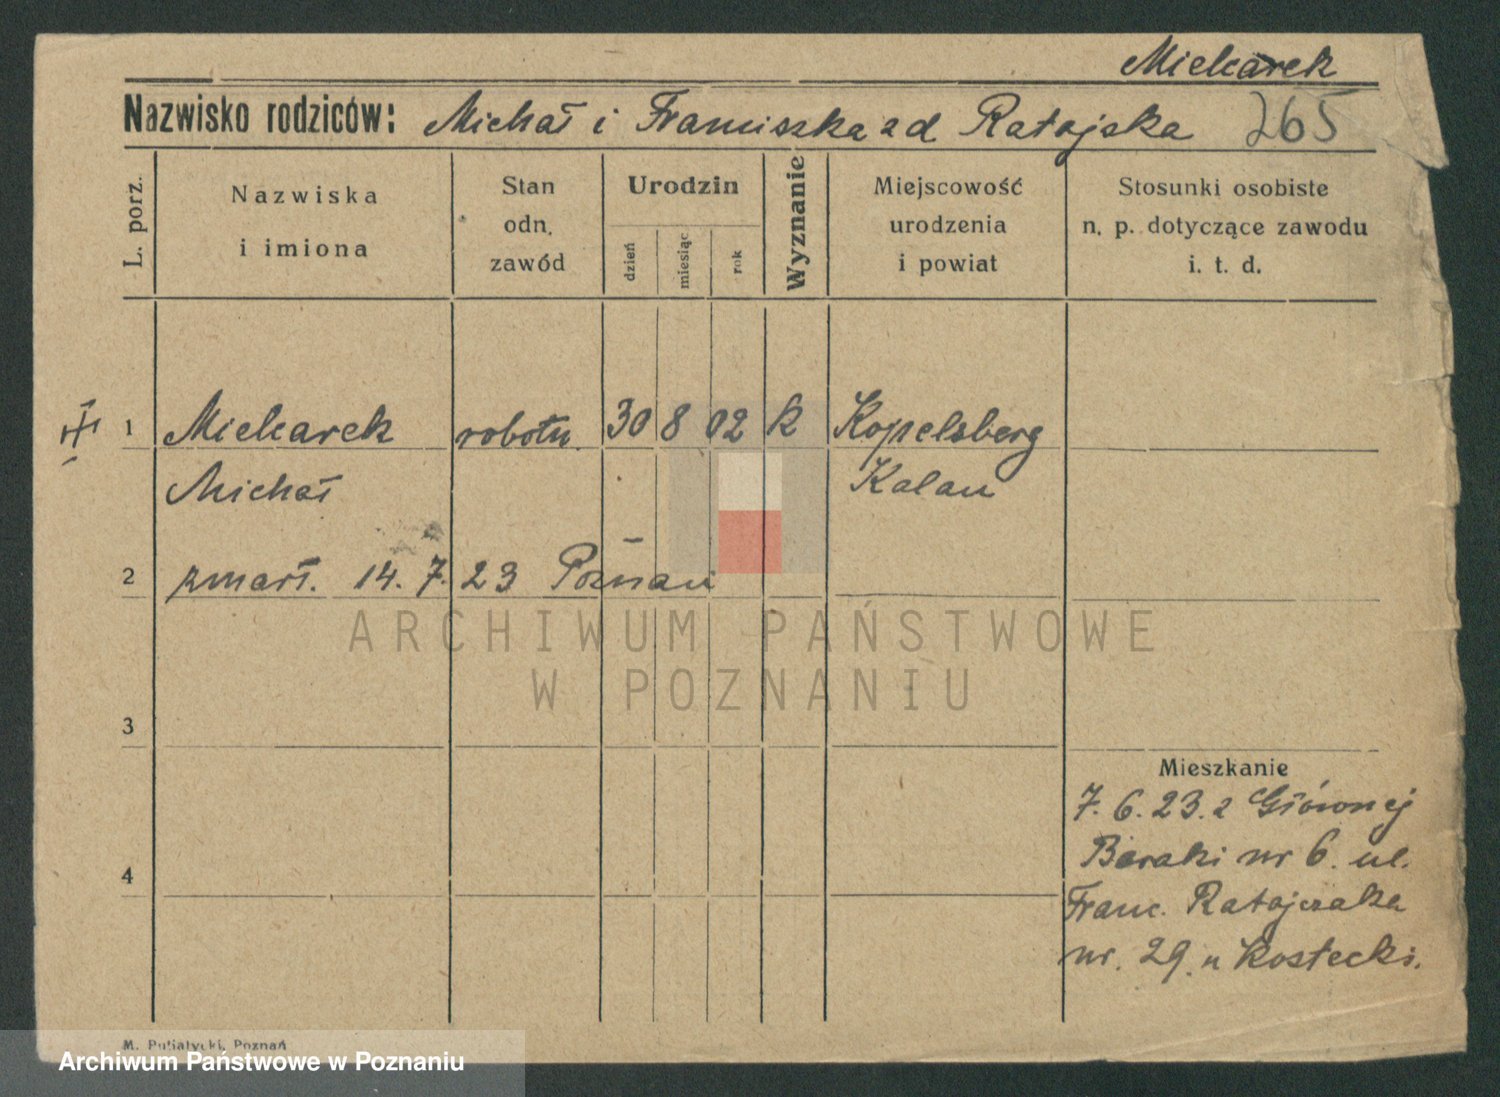 Mielcarek
Nazwisko rodziców: Michał i Franciszka z d Ratajska 265
L. porz.
Nazwiska
i imiona
Stan
odn.
zawód
Urodzin
dzień
miesiąc
rok
Wyznanie
Miejscowość
urodzenia
i powiat
Stosunki osobiste
n. p. dotyczące zawodu
i. t. d.
1 Mielcarek robotn. 30 8 02 k Kopelsberg
Michał Kalau
2 zmarł. 14. 7. 23 Poznań
ARCHIWUM PAŃSTWOWE
W POZNANIU
3
Mieszkanie
7. 6. 23. z Głównej
Baraki nr 6. ul.
4
Franc. Ratajczaka
nr. 29. u Kostecki.
M. Putiatycki, Poznań
Archiwum Państwowe w Poznaniu